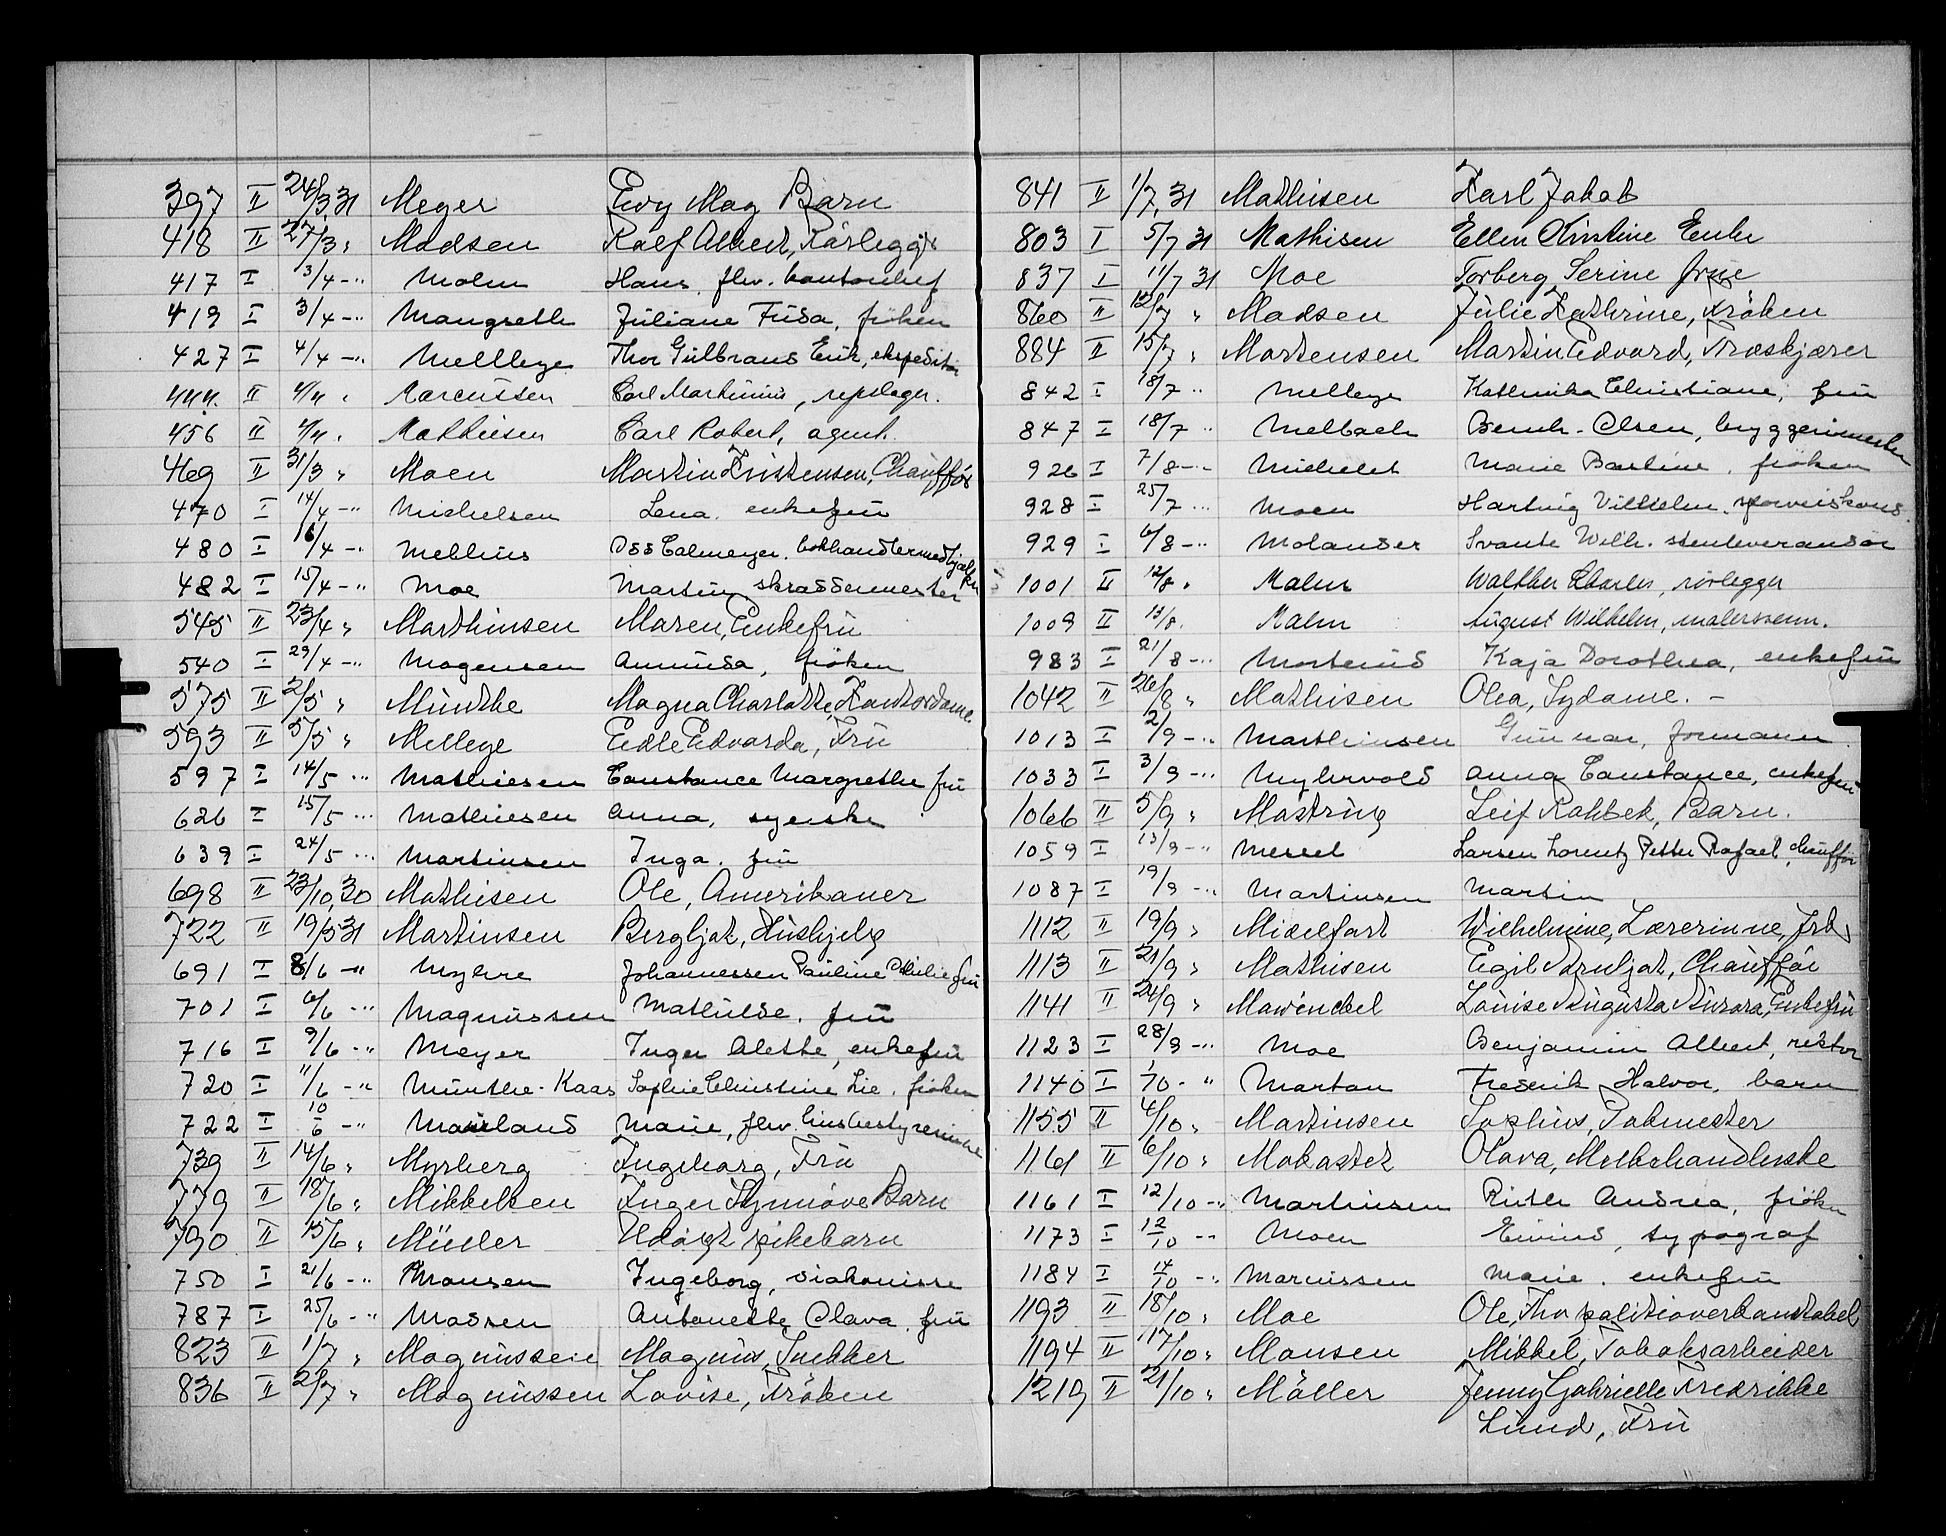 397 II 24/3,31 Meyer Evy Mag Barn
418 II 27/3 " Madsen Ralf Albert, Rörlegger
417 I 3/4 -" Malm Hans, fhv. kontorchef
419 I 3/4 -" Mangseth Juliane Fusa, fröken
427 I 4/4 -" Melleye Thor Gulbrans Erik, ekspeditör
444 II 4/4 " Marcussen Carl Martinius, repslager.
456 II 4/4 " Mathiesen Carl Robert, agent.
469 II 31/3 " Moen Martin Kristensen, Chauffør
470 I 14/4 -" Michelsen Lena, enkefru
480 I 16/4 -" Meblius Oss Calmeyer, bokhandlermedhjelper
482 I 15/4 -" Moe Martin, skrassermester
545 II 23/4 " Marthinsen Maren, Enkefru
540 I 29/4 -" Mogensen Annusa, fröken
575 II 2/5 " Münthe Magna Charlotte, Kontordame
593 II 5/5 " Mellege Edle Edvarda, Fru
597 I 14/5 -" Mathiesen Constance Margrethe fru
626 I 15/5 -" Mathiesen Anna, syerske
639 I 24/5 -" Martinsen Inga, fru
698 II 23/10,30 Mathisen Ole, Amerikaner
722 II 19/5 31 Martinsen Bergljot, Hushjelp
691 I 8/6 -" Myhre Johannessen Pauline Othilie fru
701 I 6/6 -" Magnussen Mathilde, fru
716 I 9/6 -" Meyer Inger Alette, enkefru
720 I 11/6 -" Münthe-Kaas Sophie Christine Lie, fröken
722 I 10/6 -" Mauland Marie, fhv. husbestyrerinne
739 II 14/6 " Myrberg Ingeborg, Fru
779 II 18/6 " Mikkelsen Inger Synnöve Barn
790 II 15/6 " Müller Udöpt pikebarn
750 I 21/6 -" Monsen Ingeborg, diakonisse
787 I 25/6 -" Massen Antonette Olava, fru
823 II 1/7 " Magnussen Magnus, Snekker
836 II 2/7 " Magnussen Lovise, Fröken
841 II 1/7, 31 Mathisen Karl Jakob
803 I 5/7 31 Mathisen Ellen Kirstine Enke
837 I 11/7 31 Moe Torberg Serine frue
860 II 12/7 " Madsen Julie Kathrine, Fröken
884 II 15/7 " Martensen Martin Edvard, Træskjærer
842 I 18/7 " Melleye Kathinka Christiane, fru
847 I 18/7 " Melbach Bernh. Olsen, bryggerimester
926 I 7/8 -" Michelet Marie Bartine, fröken
928 I 25/7 -" Moen Hartvig Vilhelm,
929 I 6/8 -" Molander Svante Wilh. stenleverandör
1001 II 12/8 " Malm Walther Charles, rørlegger
1009 II 13/8 Malm August Wilhelm, malersvenn.
983 I 21/8 -" Mortenus Kaja Dorothea, enkefru
1042 II 26/8 " Mathisen Olea, Sydame. -
1013 I 2/9 -" Marthinsen Gunnar, formann
1033 I 3/9 -" Myhrvold Anna Constance, enkefru
1066 II 5/9 " Mastrup Leif Rahbek, Barn.
1059 I 13/9 -" Messel Larsen Lorentz Petter Rafael, chauffør
1087 I 19/9 -" Martinsen Martin
1112 II 19/9 " Midelfart Wilhelmine, Lærerinne, frk.
1113 II 21/9 " Mathisen Egil Arnljot, Chauffør
1141 II 24/9 " Mawinckel Louise Augusta Aurora, Enkefru
1123 I 28/9 -" Moe Benjamin Albert, rektor
1140 I 1/10 - " Martan Frederik Halvor, barn
1155 II 4/10 " Martinsen Sophus, Pakmester
1161 II 6/10 " Mokastet Olava, Melkehandlerske
1161 I 12/10 -" Marthinsen Ruth Andrea, fröken
1173 I 12/10 -" Moen Eivind, typograf
1184 I 14/10 -" Marcussen Marie, enkefru
1193 II 18/10 " Moe Ole, Thv politioverkonstabel
1194 II 17/10 " Monsen Mikkel, Tobaksarbeider
1219 II 21/10 " Möller Jenny Gabrielle Fredrikke
Lund, Fru